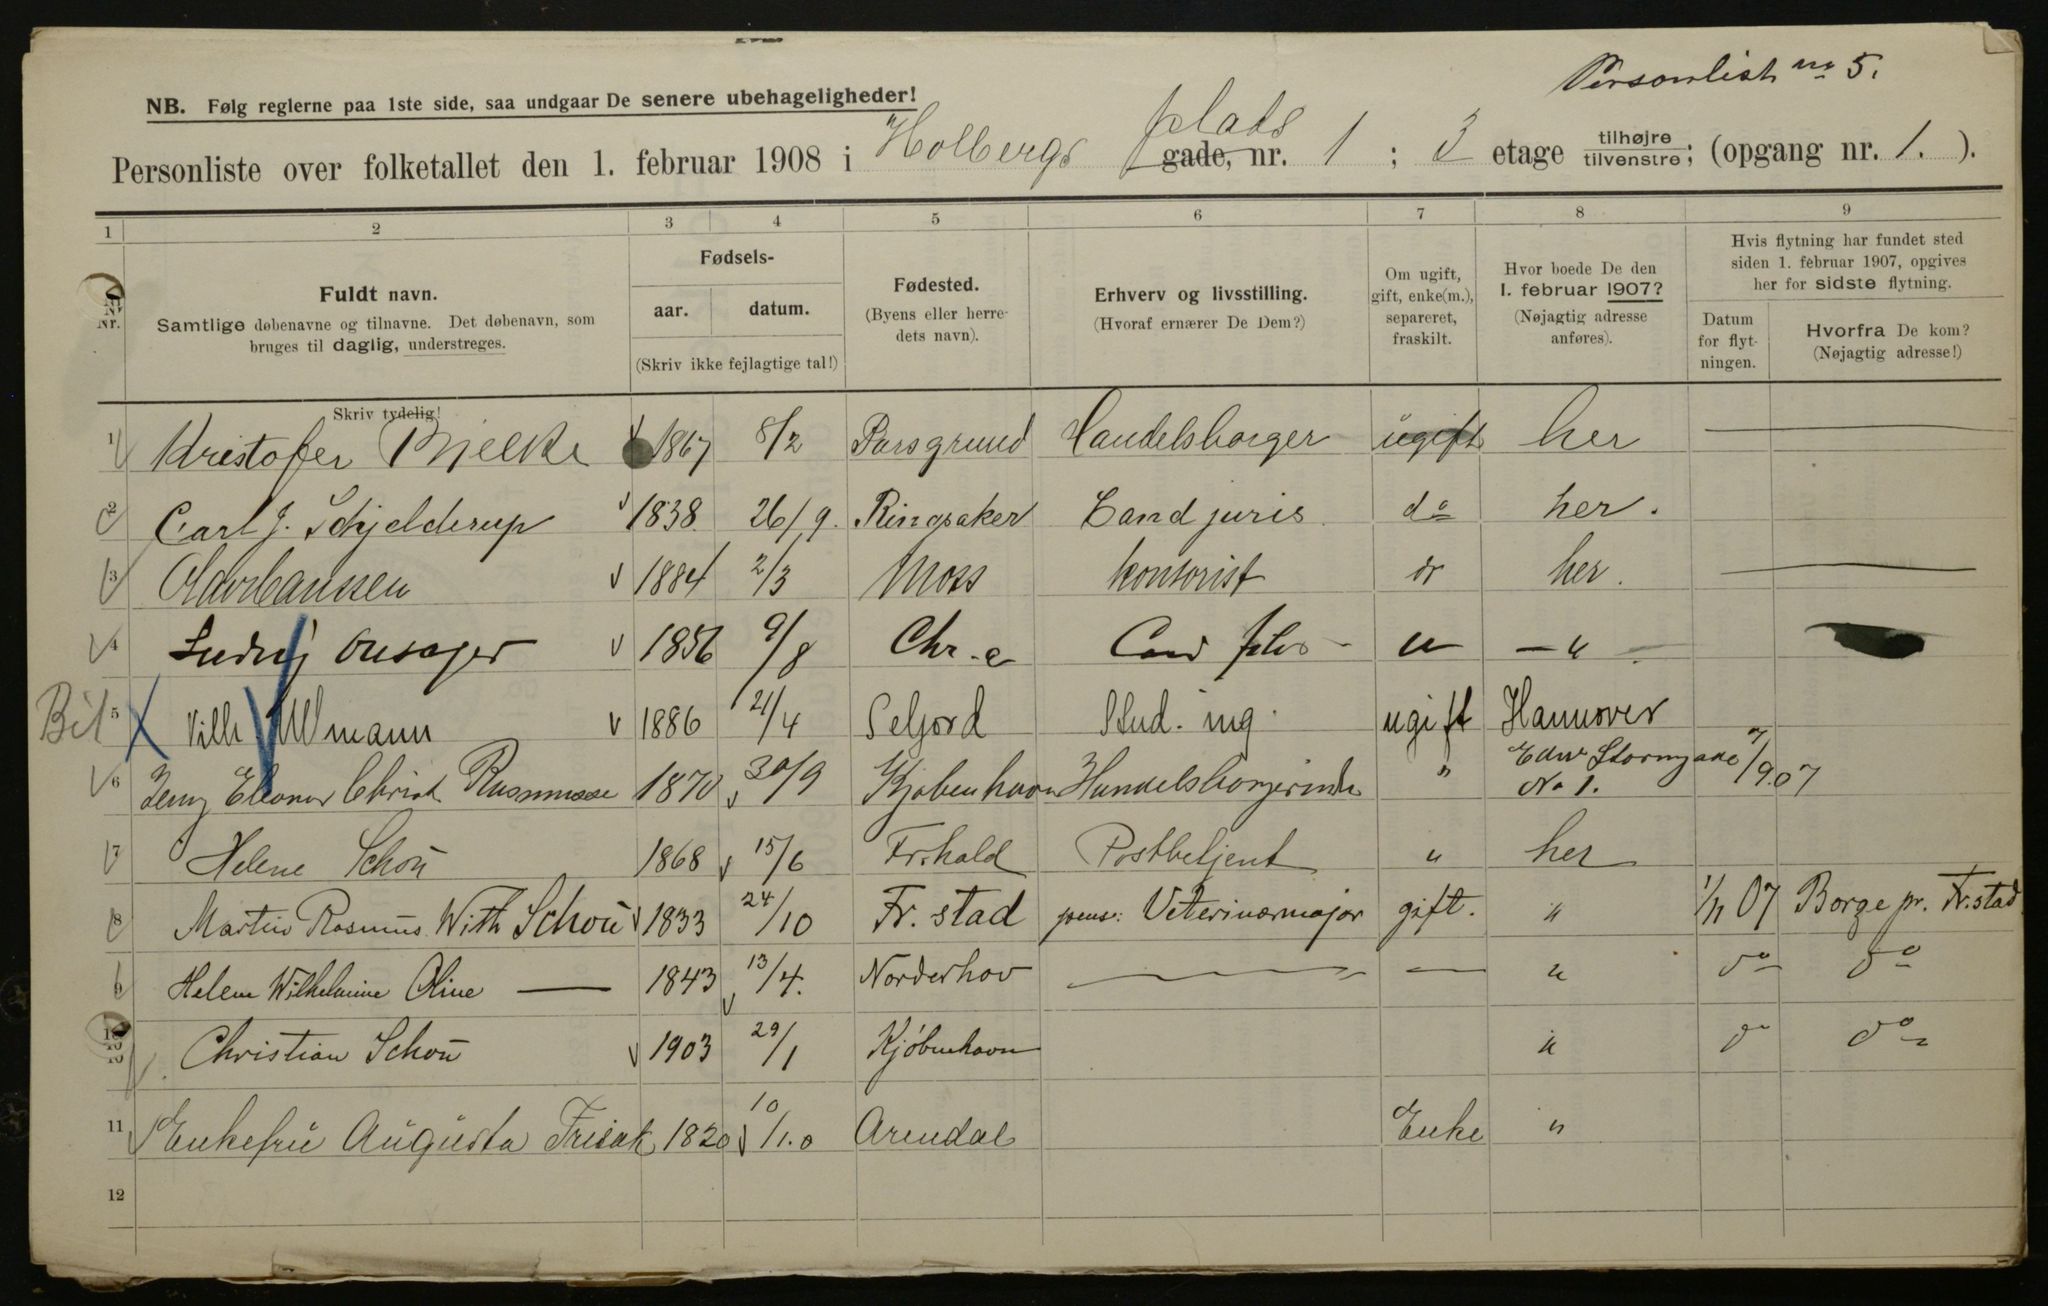 Personlist no 5.
NB. Følg reglerne paa 1ste side, saa undgaar De senere ubehageligheder!
Personliste over folketallet den 1. februar 1908 i Holbergs plads gade, nr. 1 ; 3 etage tilhøjre tilvenstre; (opgang nr. 1. ).
1 2 3 4 5 6 7 8 9
Nr.
Fuldt navn.
Samtlige døbenavne og tilnavne. Det døbenavn, som
bruges til daglig, understreges.
Skriv tydelig!
Fødsels-
aar. datum.
(Skriv ikke fejlagtige tal!)
Fødested.
(Byens eller herre-
dets navn).
Erhverv og livsstilling.
(Hvoraf ernærer De Dem?)
Om ugift,
gift, enke(m.),
separeret,
fraskilt.
Hvor boede De den
1. februar 1907?
(Nøjagtig adresse
anføres).
Hvis flytning har fundet sted
siden 1. februar 1907, opgives
her for sidste flytning.
Datum
for flyt-
ningen.
Hvorfra De kom?
(Nøjagtig adresse!)
1 Kristofer Bjelke 1867 8/2 Porsgrund Handelsborger ugift her —
2 Carl J. Schjelderup 1838 26/9. Ringsaker Cand juris do her.
3 Olav Hanssen 1884 2/3 Moss kontorist do her. —
4 Ludvig Onsager 1856 9/8 Chr.a Cand filos — " — " —
Bil X 5 Vilh Ullmann 1886 21/4 Seljord Stud. ing. ugift Hannover
6 Jenny Eleonor Christ Rasmusse 1870 30/9 Kjøbenhavn Handelsborgerinde " Edw Stormgade No 1. 7/9.07
7 Helene Schou 1868 15/6 Fr.hald Postbetjent " her
8 Martin Rasmus With Schou 1833 24/10 Fr. stad pens: Veterinærmajor gift. " 1/11 07 Borge pr. Fr.stad
9 Helene Wilhelmine Oline — 1843 13/4. Norderhov — " — " do do
10 Christian Schou 1903 29/1 Kjøbenhavn " do do
11 Enkefru Augusta Frisak 1820 10/10 Arendal Enke "
12